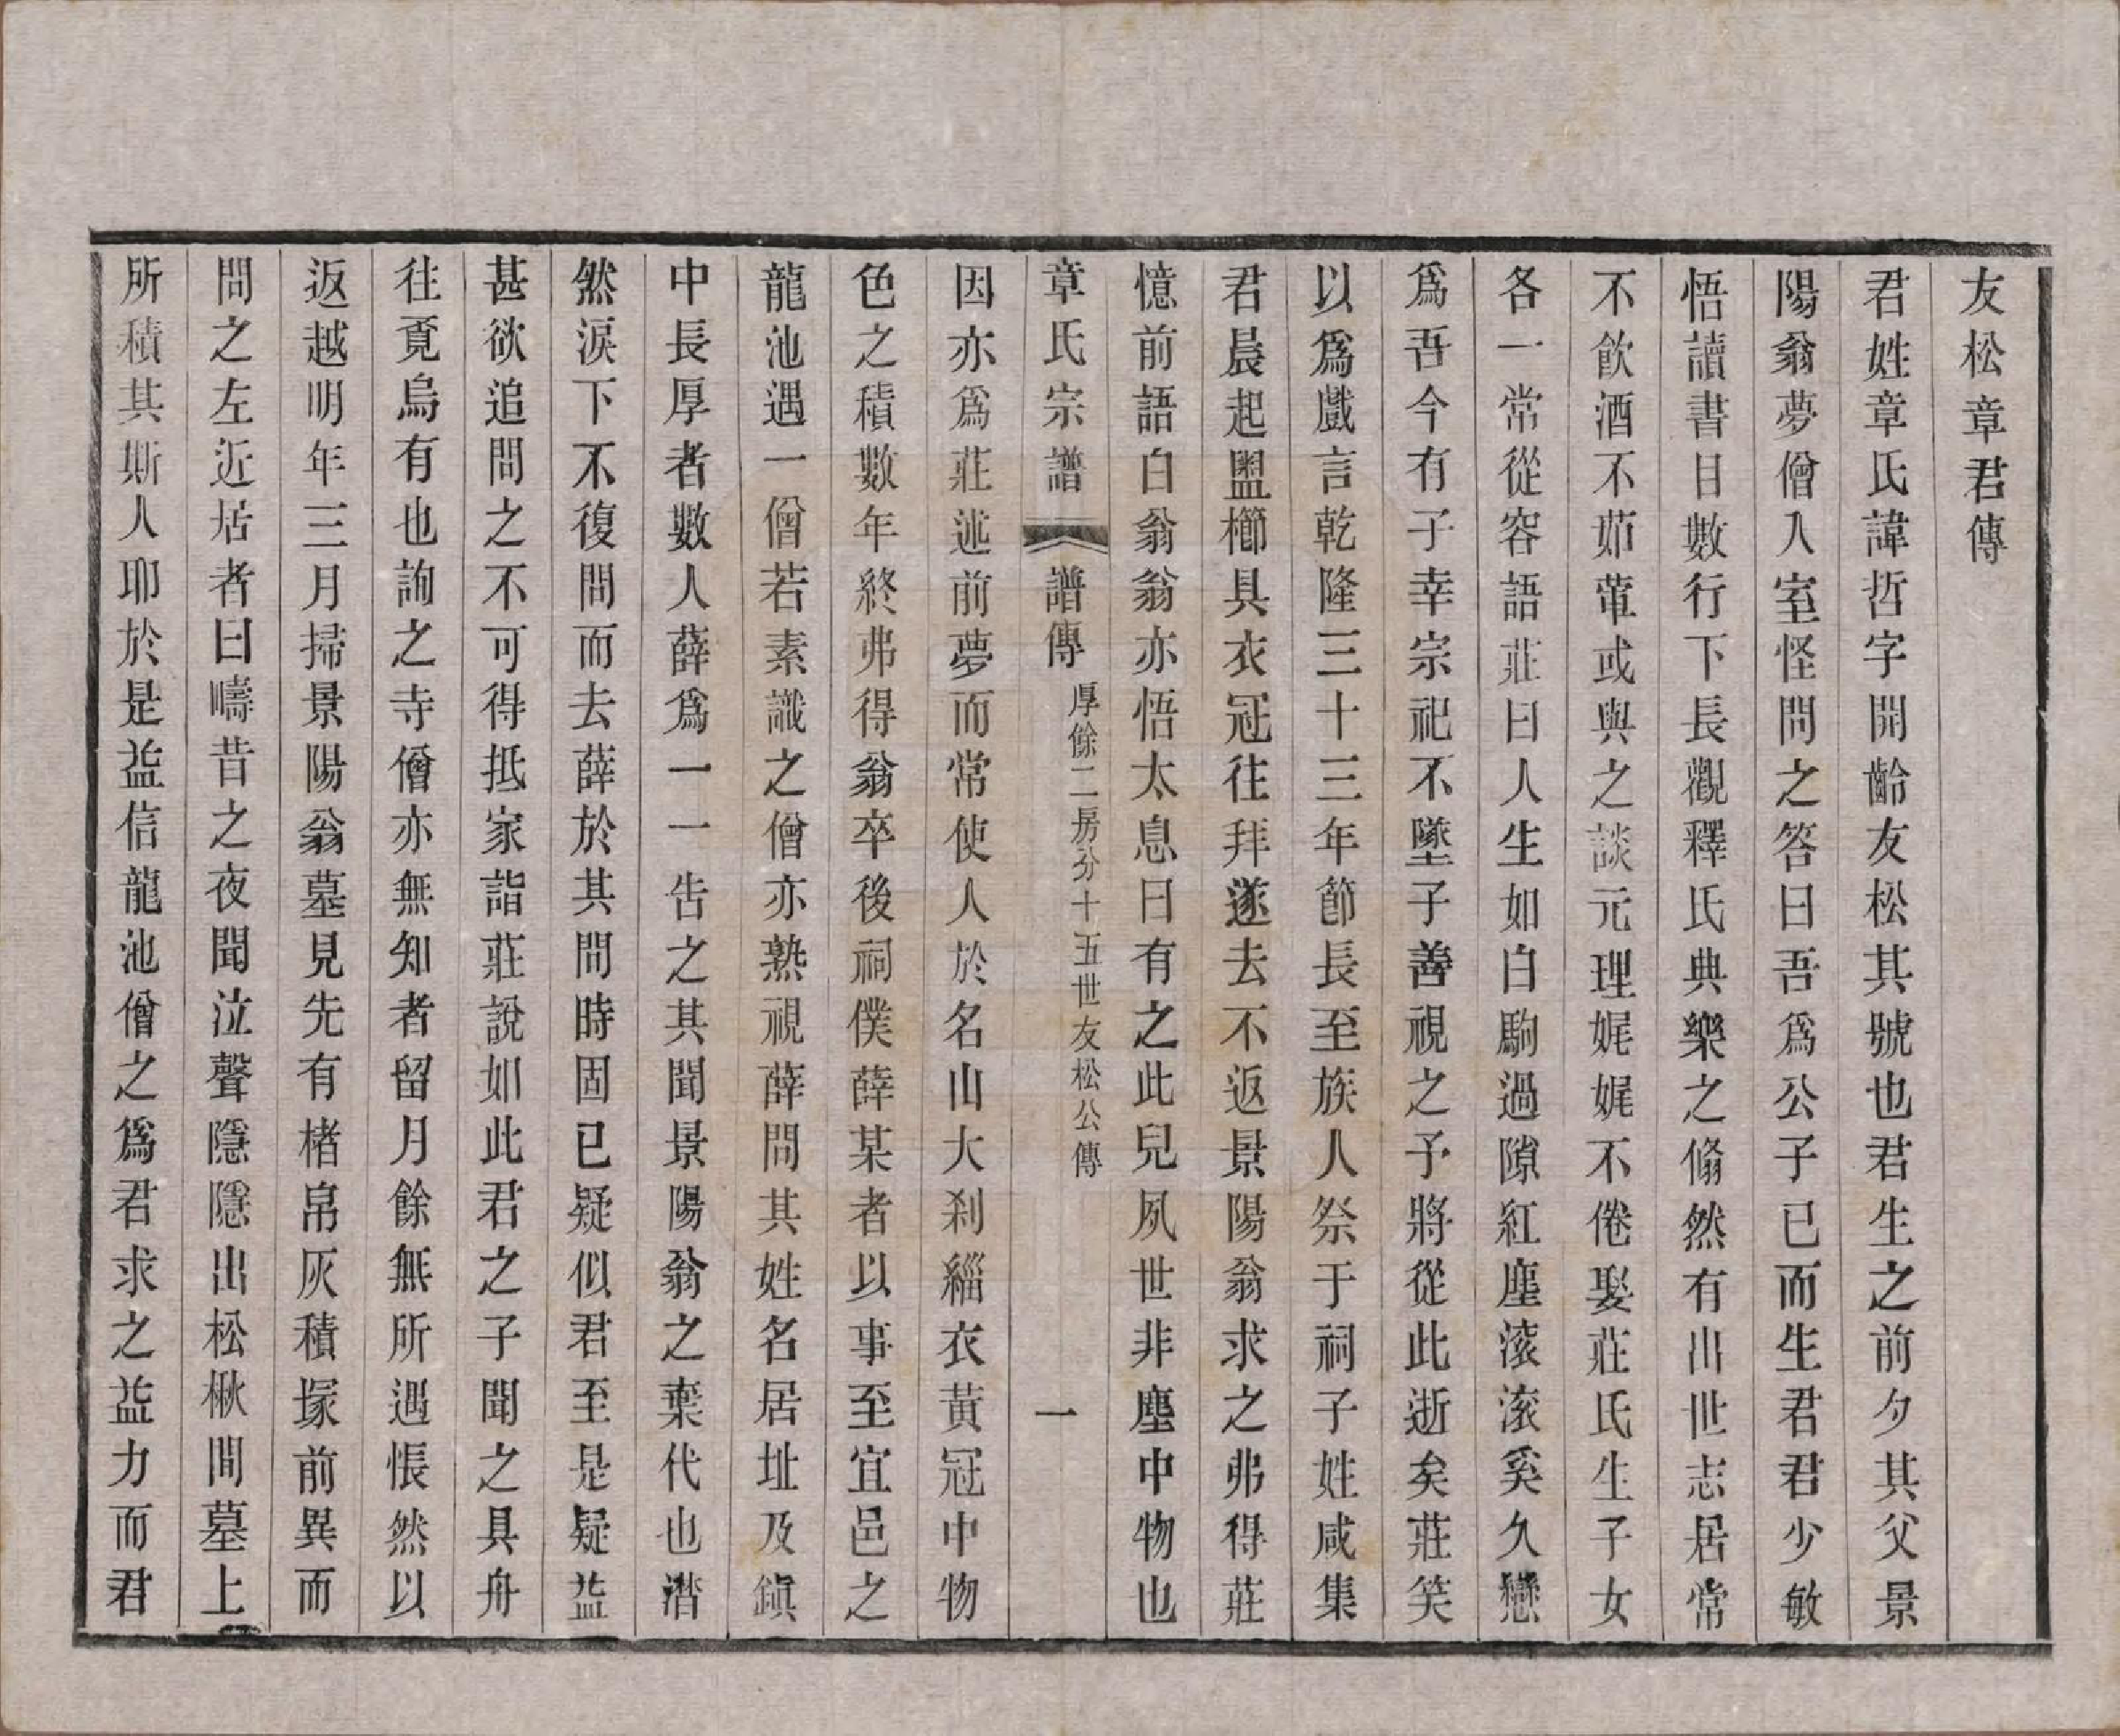 友松章君傳
君姓章氏諱哲字開齡友松其號也君生之前夕其父景
陽翁夢僧入室怪問之答曰吾爲公子已而生君君少敏
悟讀書日數行下長觀釋氏典樂之翛然有出世志居常
不飲酒不茹葷或與之談元理娓娓不倦娶莊氏生子女
各一常從容語莊曰人生如白駒過隙紅塵滾滾奚久戀
爲吾今有子幸宗祀不墜子善視之予將從此逝矣莊笑
以爲戲言乾隆三十三年節長至族人祭于祠子姓咸集
君晨起盥櫛具衣冠往拜遂去不返景陽翁求之弗得莊
憶前語白翁翁亦悟太息曰有之此兒夙世非塵中物也
章氏宗譜 譜傳 厚餘二房分十五世友松公傳 一
因亦爲莊述前夢而常使人於名山大刹緇衣黃冠中物
色之積數年終弗得翁卒後祠僕薛某者以事至宜邑之
龍池遇一僧若素識之僧亦熟視薛問其姓名居址及鎭
中長厚者數人薛爲一一告之其聞景陽翁之棄代也潛
然淚下不復問而去薛於其問時固已疑似君至是疑益
甚欲追問之不可得抵家詣莊說如此君之子聞之具舟
往覓烏有也詢之寺僧亦無知者留月餘無所遇悵然以
返越明年三月掃景陽翁墓見先有楮帛灰積塚前異而
問之左近居者曰疇昔之夜聞泣聲隱隱出松楸間墓上
所積其斯人耶於是益信龍池僧之爲君求之益力而君